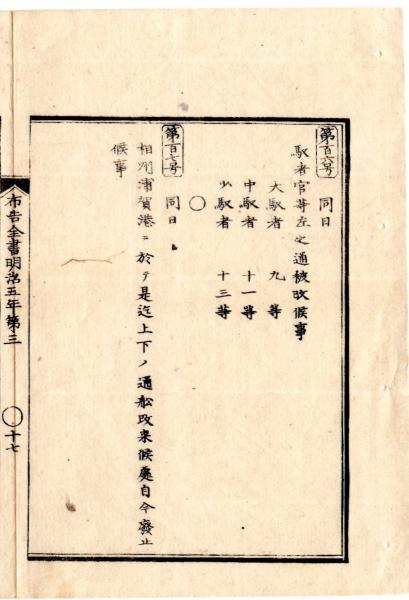 第百六号
同日
馭者官等左之通被改候事
大馭者 九等
中馭者 十一等
少馭者 十三等
〇
第百七号
同日
相州浦賀港ニ於テ是迄上下ノ通舩改来候處自今廢止
候事
布告全書明治五年第三
〇十七